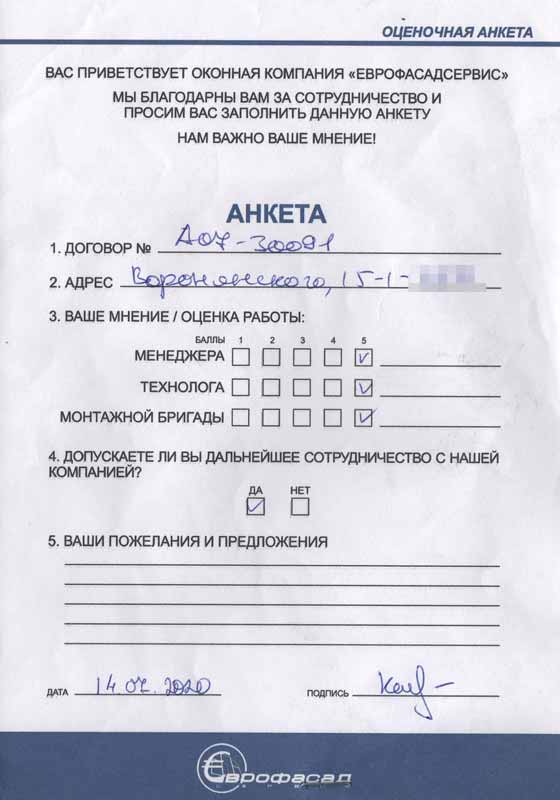 ОЦЕНОЧНАЯ АНКЕТА
ВАС ПРИВЕТСТВУЕТ ОКОННАЯ КОМПАНИЯ «ЕВРОФАСАДСЕРВИС»
МЫ БЛАГОДАРНЫ ВАМ ЗА СОТРУДНИЧЕСТВО И
ПРОСИМ ВАС ЗАПОЛНИТЬ ДАННУЮ АНКЕТУ
НАМ ВАЖНО ВАШЕ МНЕНИЕ!
АНКЕТА
1. ДОГОВОР № А07-30091
2. АДРЕС Воронянского, 15-1-
3. ВАШЕ МНЕНИЕ / ОЦЕНКА РАБОТЫ:
БАЛЛЫ 1 2 3 4 5
МЕНЕДЖЕРА
ТЕХНОЛОГА
МОНТАЖНОЙ БРИГАДЫ
4. ДОПУСКАЕТЕ ЛИ ВЫ ДАЛЬНЕЙШЕЕ СОТРУДНИЧЕСТВО С НАШЕЙ
КОМПАНИЕЙ?
ДА НЕТ
5. ВАШИ ПОЖЕЛАНИЯ И ПРЕДЛОЖЕНИЯ
ДАТА 14.07.2020 ПОДПИСЬ
Еврофасад